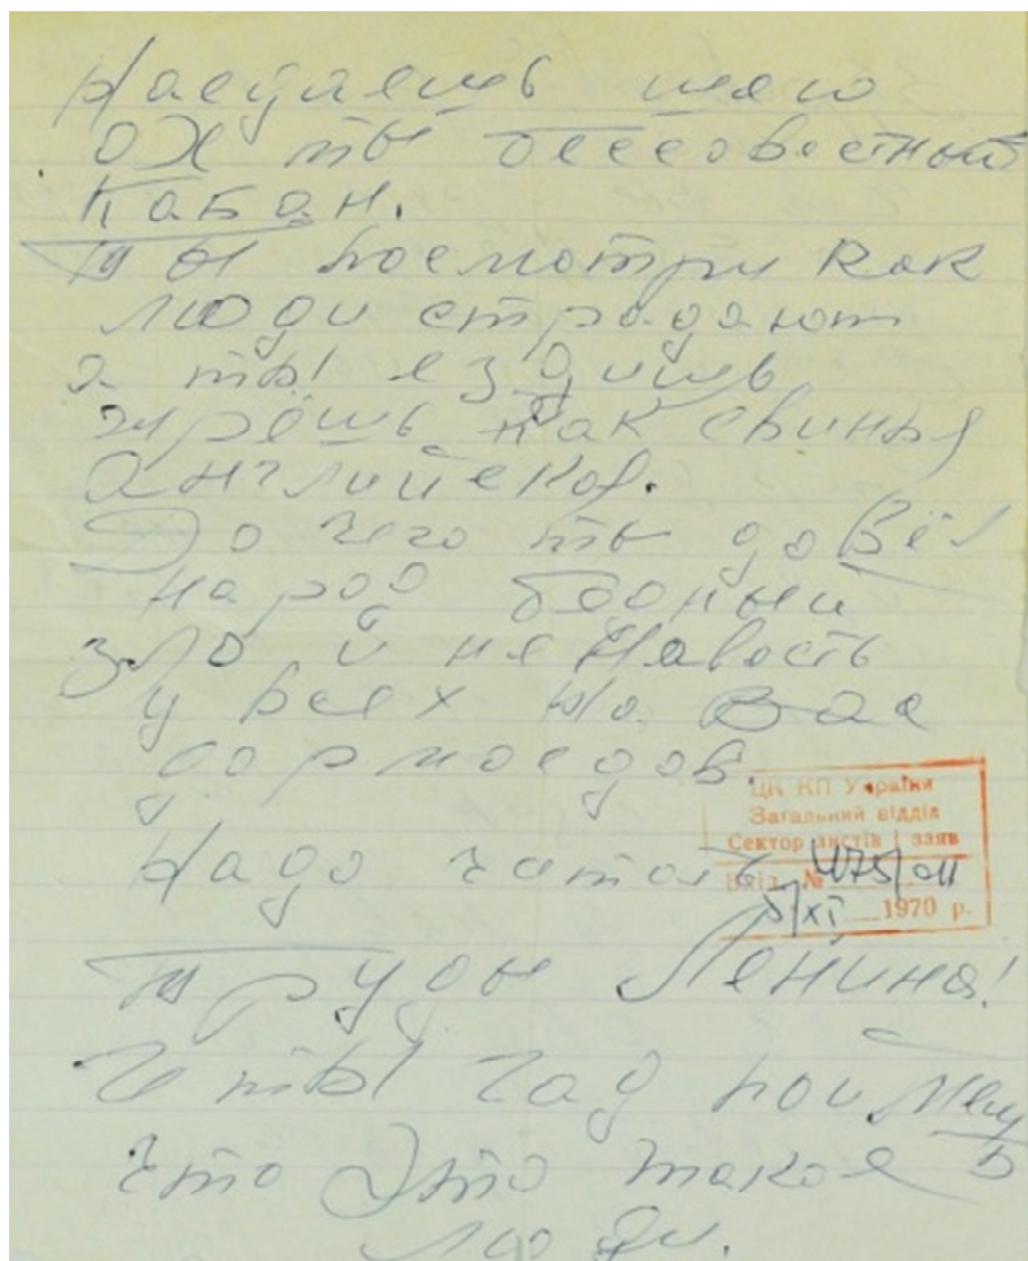 Насуляешь шею
ох ты бессовестный
кабан.
Ты посмотри как
люди страдают
а ты ездишь
жрёшь как свинья
Английская.
До чего ты довёл
народ бедный
зло и не Навость
у всех на Вас
дармоедов.
ЦК КП України
Загальний відділ
Сектор листів і заяв
Вхід. № 475/011
5/XI 1970 р.
Надо читать
труды Ленина!
И ты гад поймешь
что Это такое
люди.